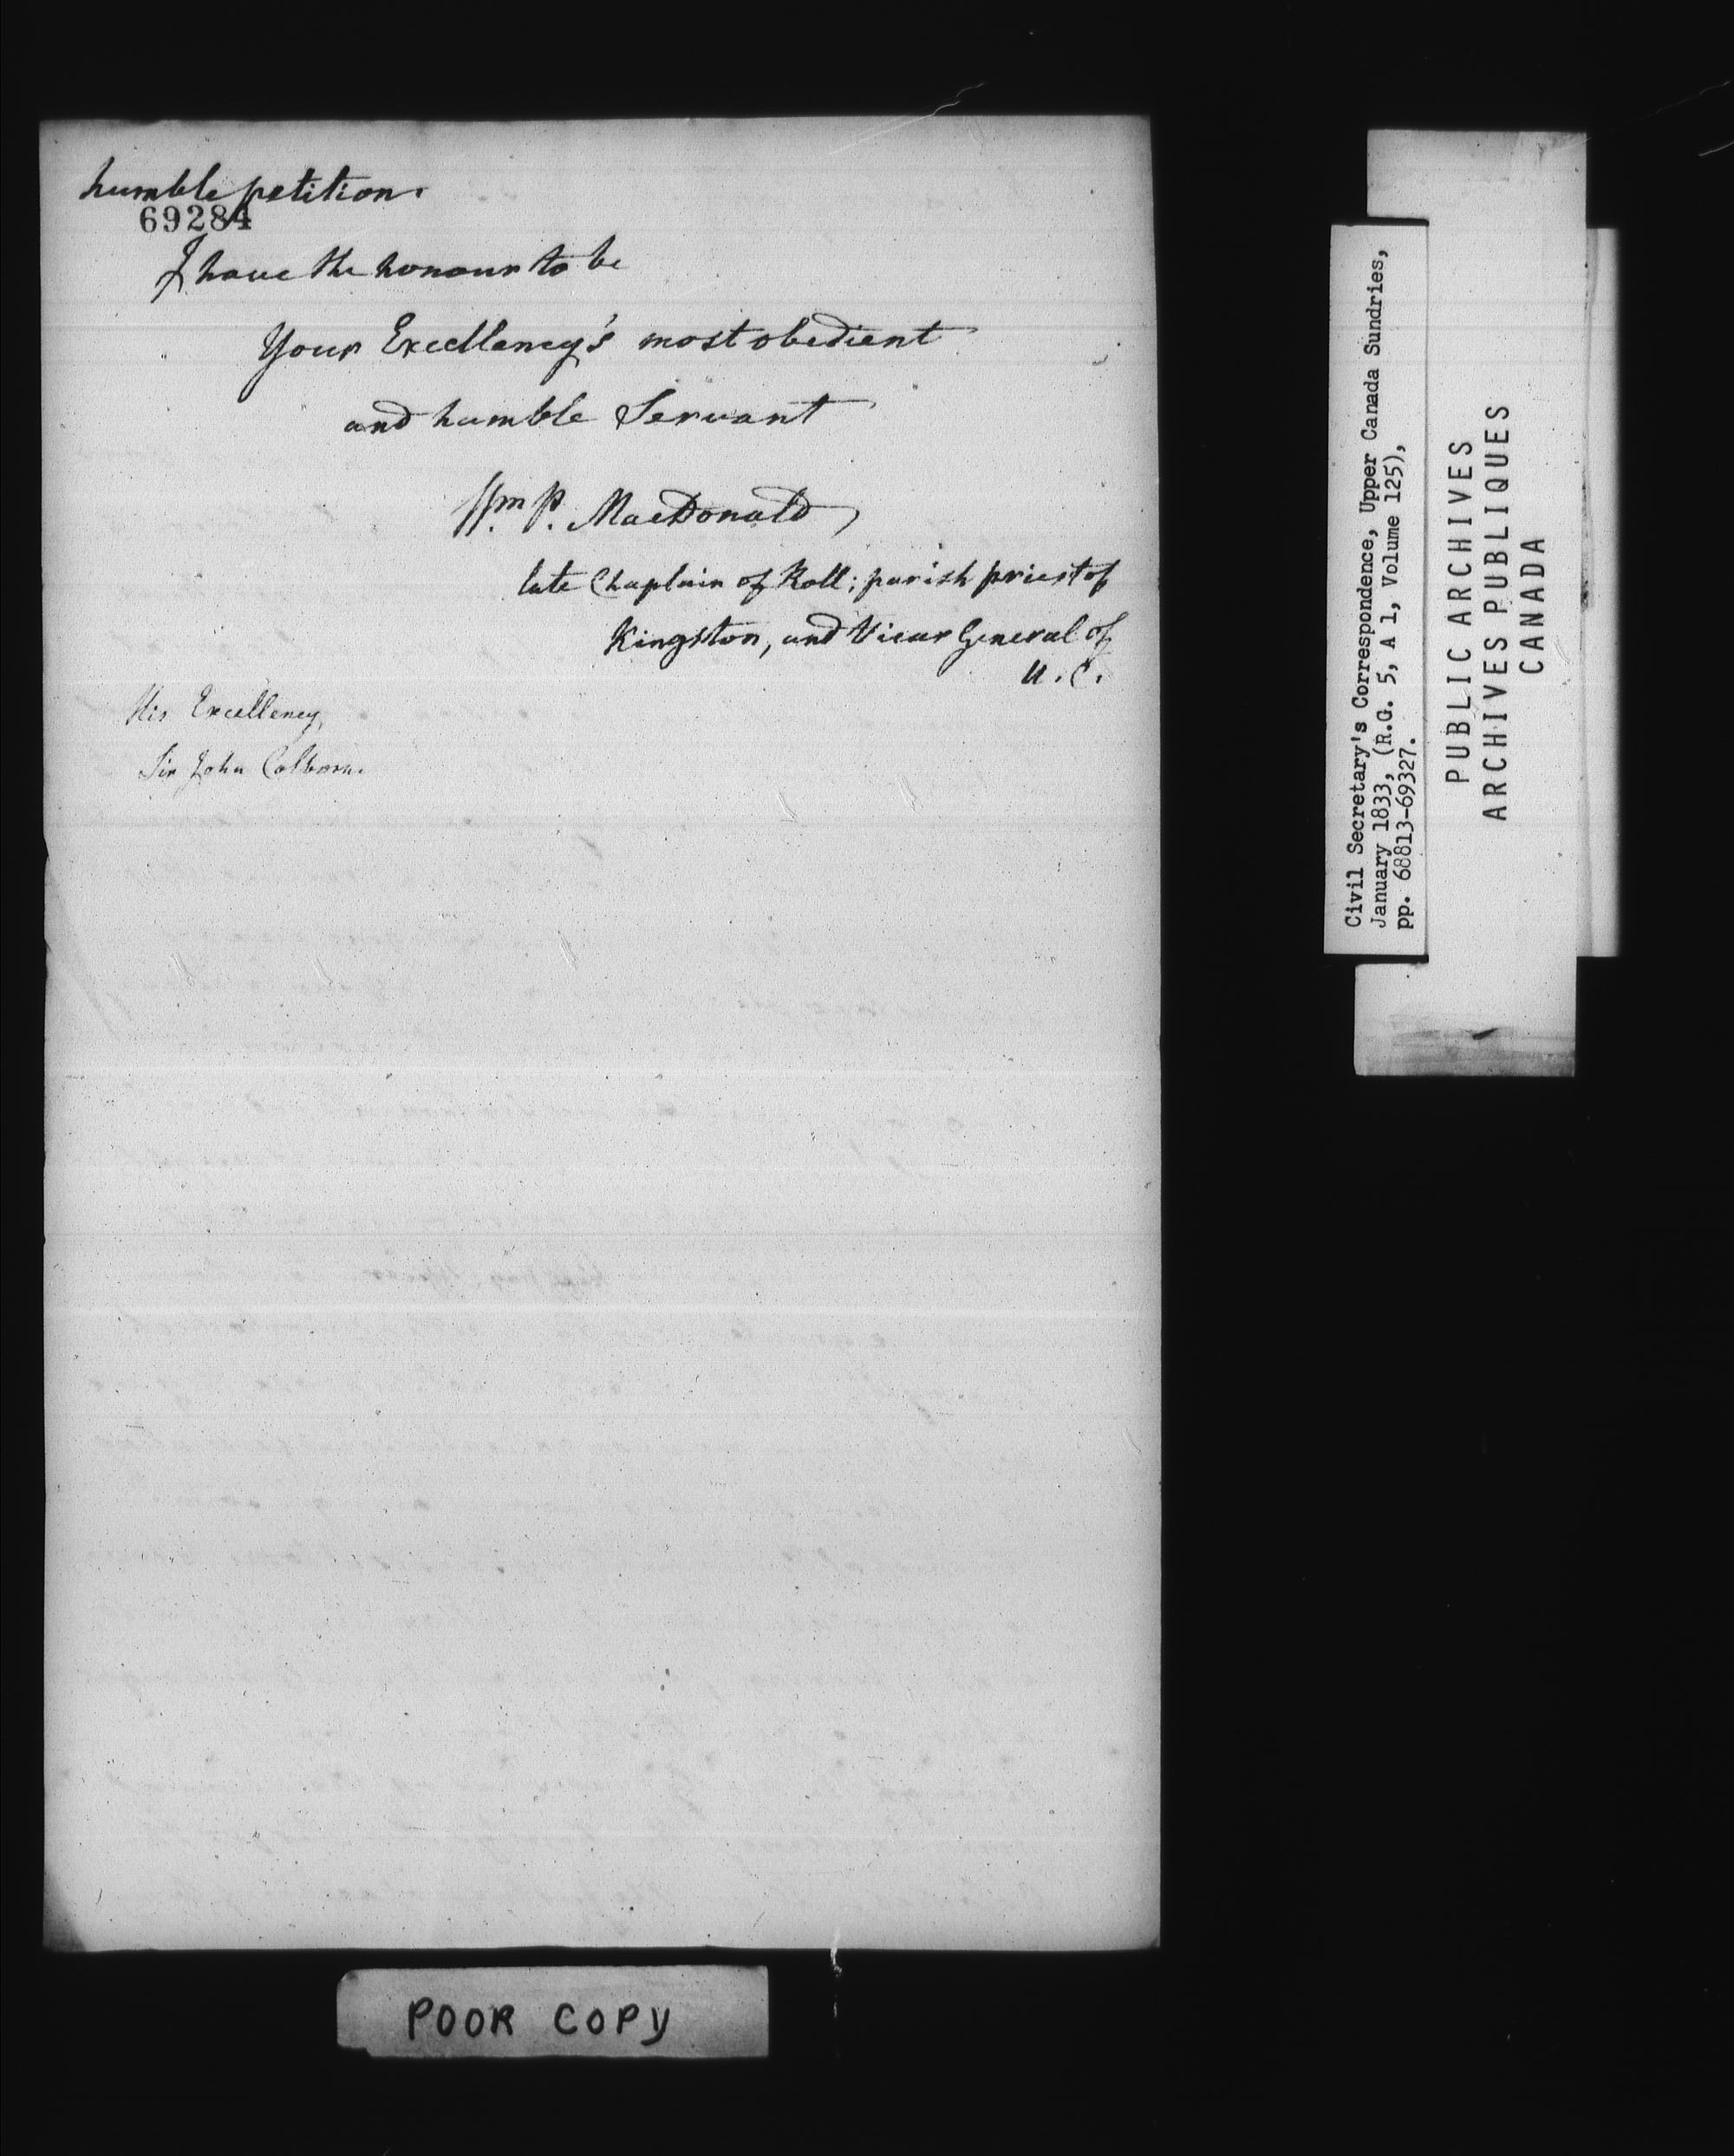 humble petition.
69284
I have the honour to be
Your Excellency's most obedient
and humble Servant
Wm. P. MacDonald,
late Chaplain of Roll; parish priest of
Kingston, and Vicar General of
U. C.
His Excellency,
Sir John Colborne
Civil Secretary's Correspondence, Upper Canada Sundries,
January 1833, (R.G. 5, A 1, Volume 125),
pp. 68813-69327.
PUBLIC ARCHIVES
ARCHIVES PUBLIQUES
CANADA
POOR COPY